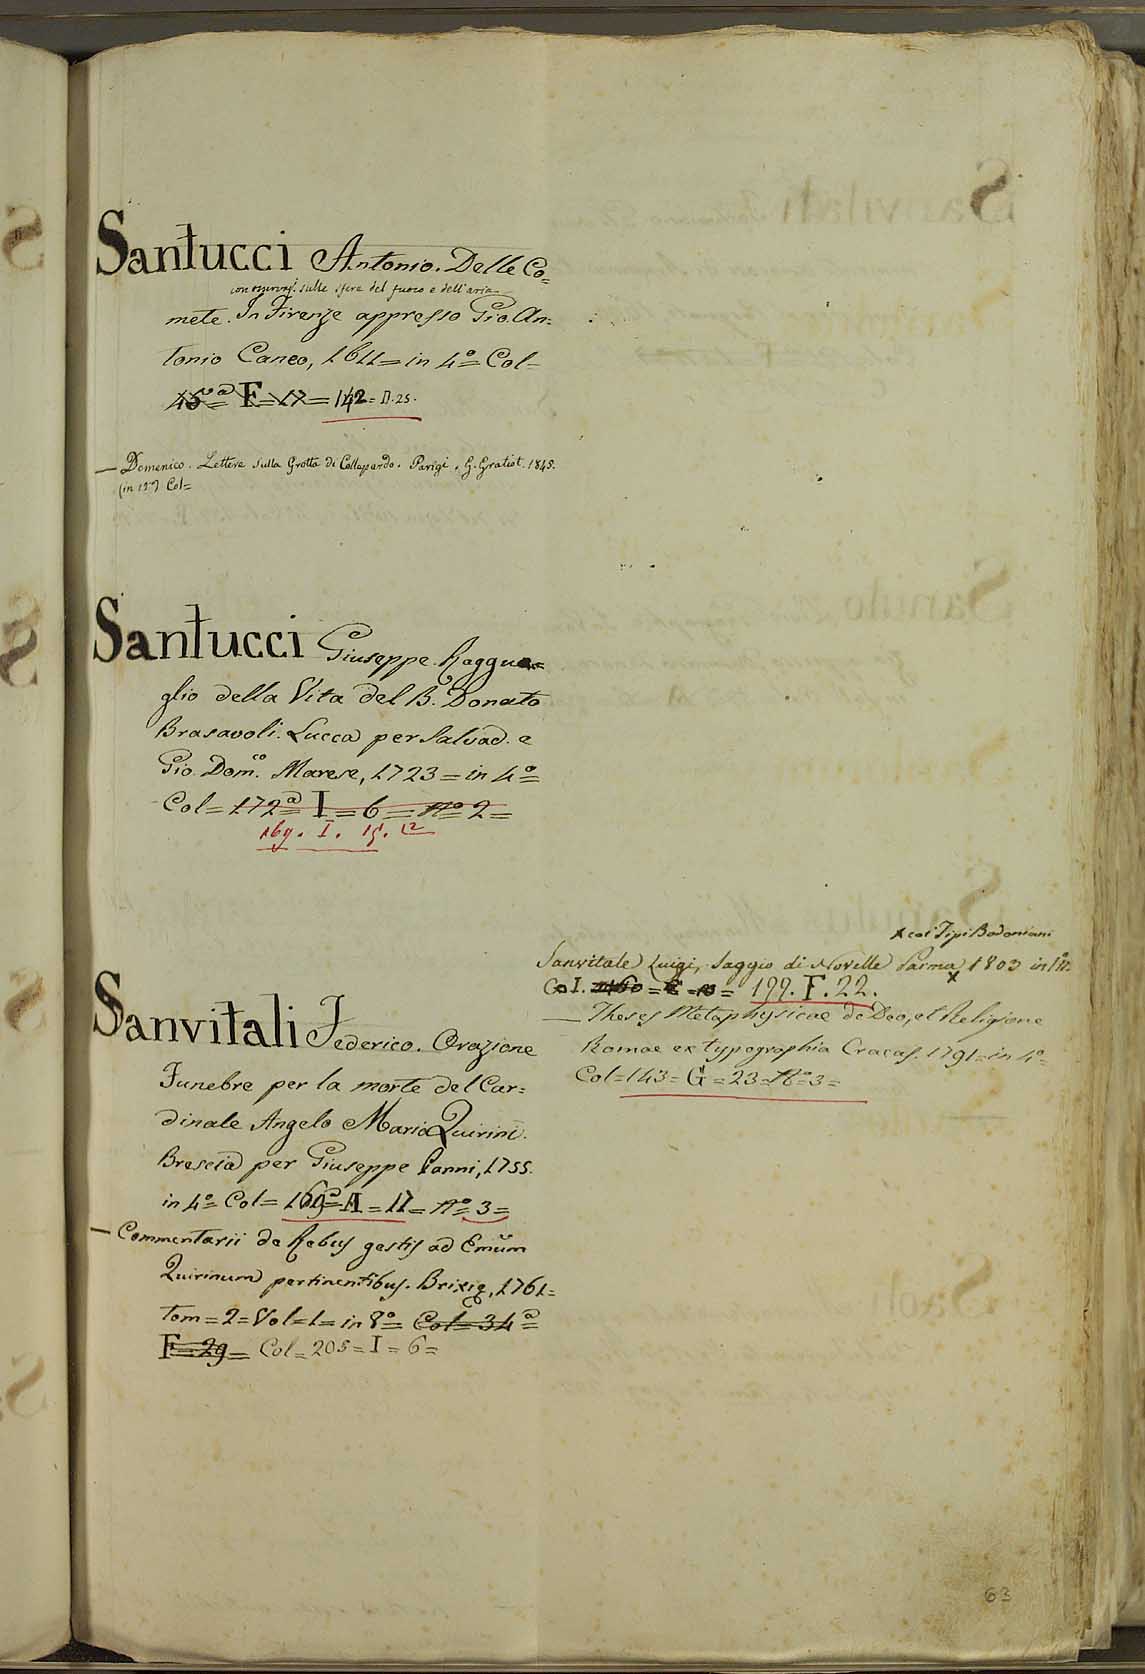 Santucci Antonio. Delle Co=
sulle sfere del fuoco e dell'aria
mete. In Firenze appresso Gio. An:
tonio Caneo, 1611= in 4º= Col=
45ª= F= 17= 142= n. 25.
— Domenico. Lettere sulla Grotta di Collepardo. Parigi. G. Gratiot. 1845.
(in 12º) Col=
Santucci Giuseppe. Raggua=
glio della Vita del B. Donato
Brasavoli. Lucca per Salvad. e
Gio. Dom.co Marese, 1723= in 4º=
Col= 172ª= I= 6= Nº 2=
169. I. 12
Sanvitali Federico. Orazione
Funebre per la morte del Car:
dinale Angelo Maria Quirini.
Brescia per Giuseppe 1755.
in 4º= Col= 169ª= A= 17= Nº 3=
— Commentarii de Rebus gestis ad Emũm
Quirinum pertinentibus. Brixię, 1761=
Tom= 2= Vol= 1= in 8º= Col= 34ª=
F= 29= Col= 205= I= 6=
x coi Tipi Bodoniani
Sanvitale Luigi, Saggio di Novelle Parma x 1803 in
Col. 199. F. 22.
— Theses Metaphysicae de Deo, et Religione
Romae ex typographia Cracas. 1791= in 4º=
Col= 143= G= 23= Nº 3=
63